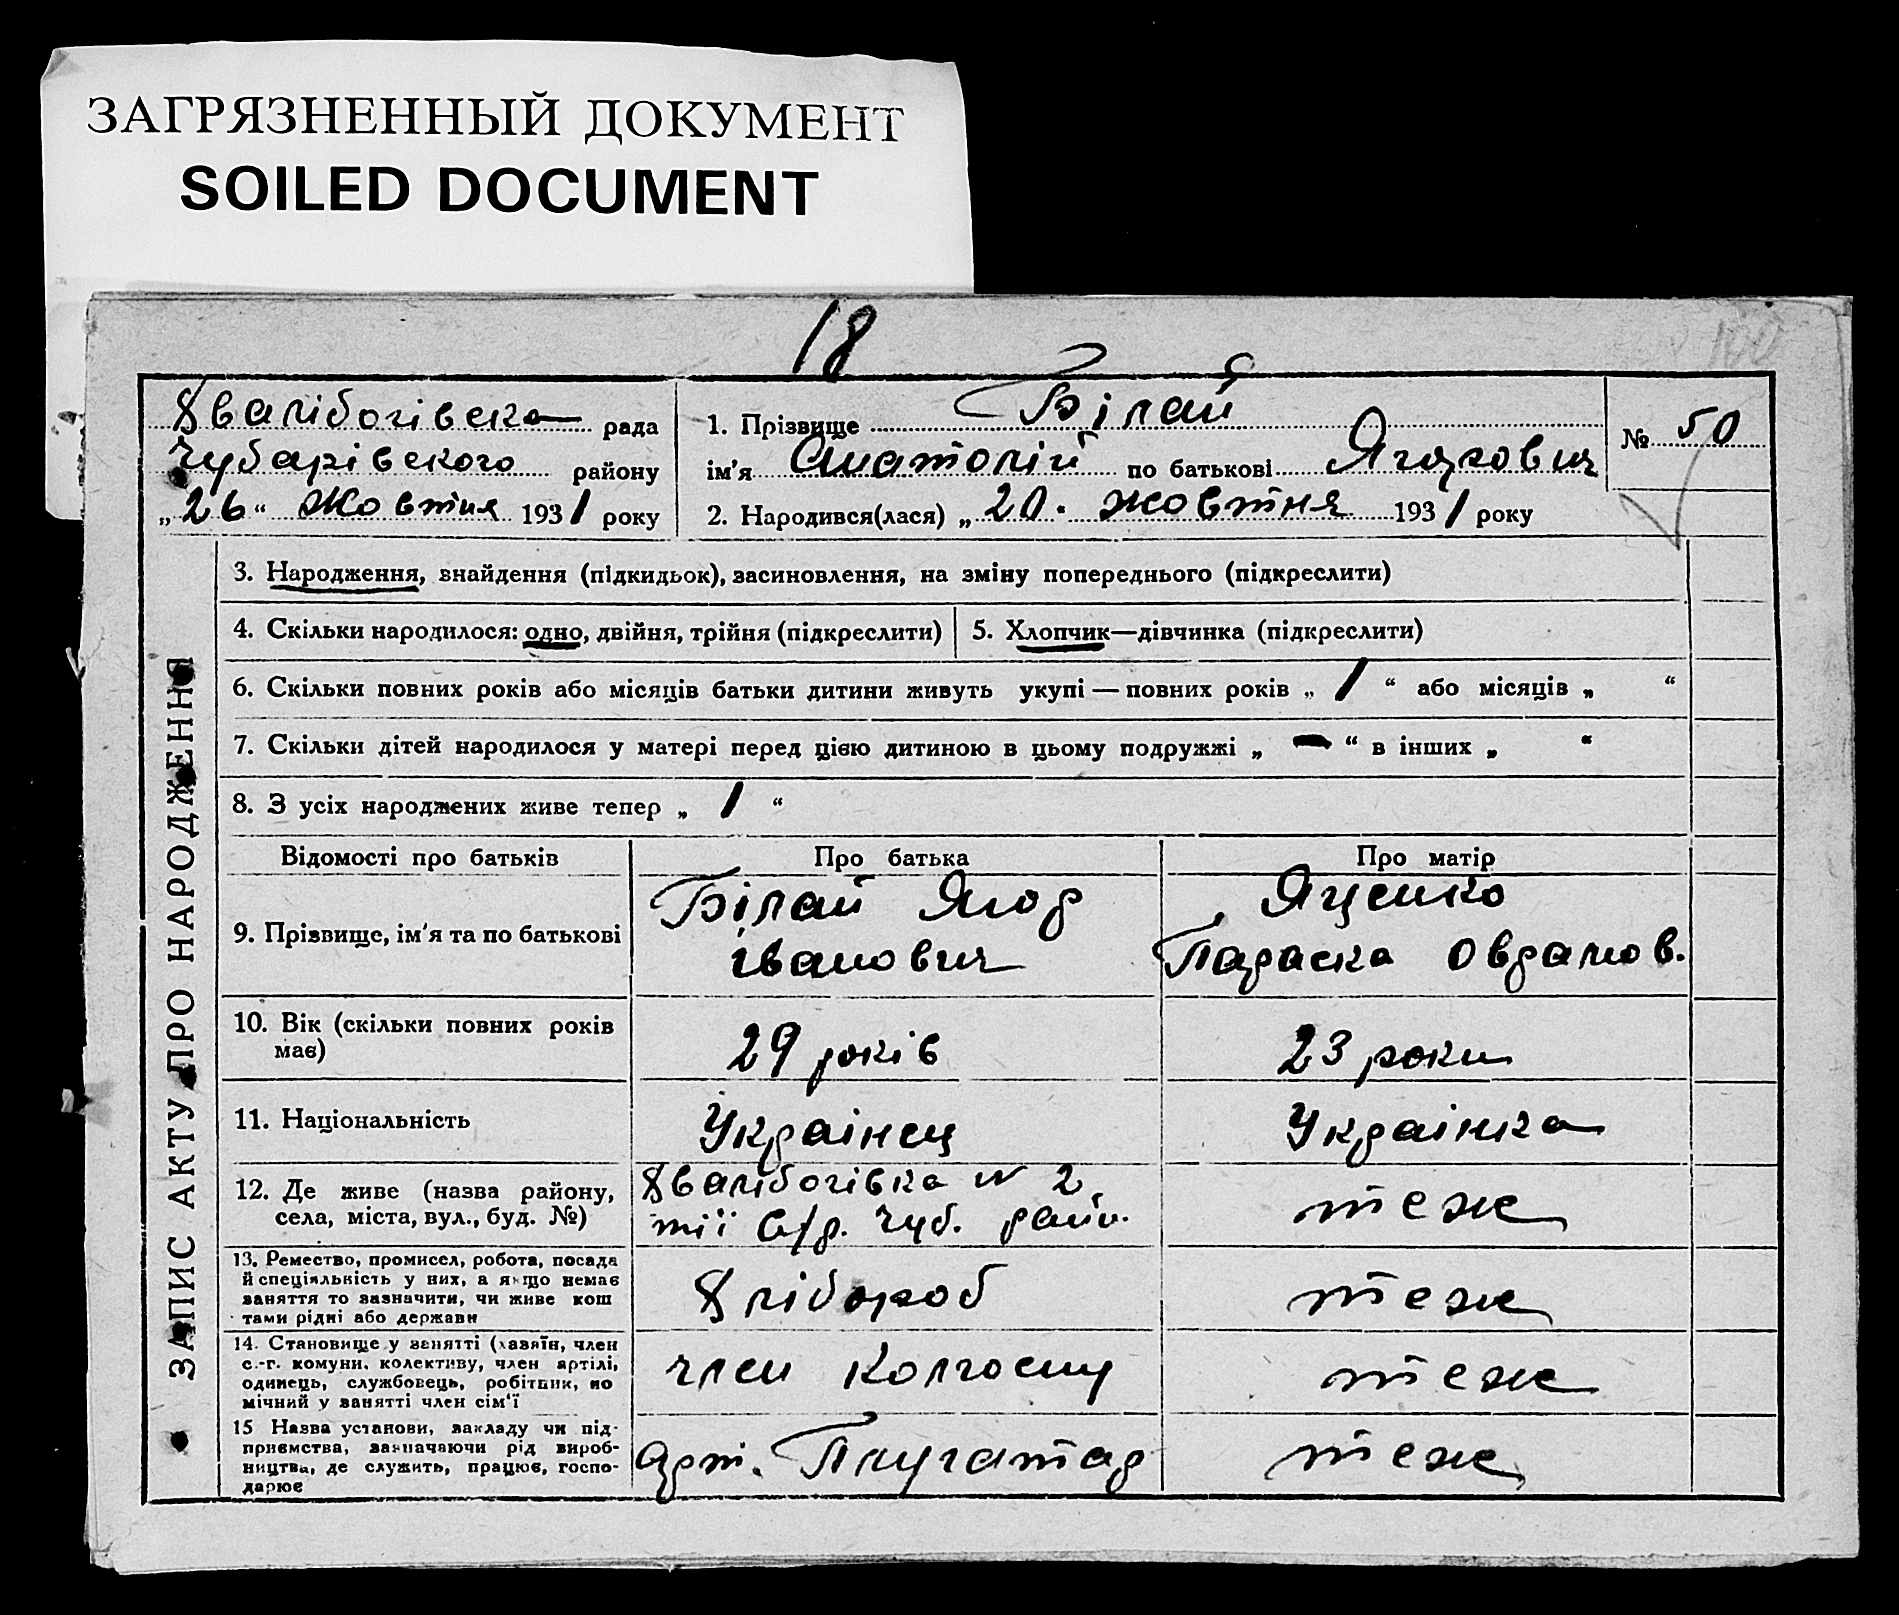 ЗАГРЯЗНЕННЫЙ ДОКУМЕНТ
SOILED DOCUMENT
18
Хвалібогівська рада
Чубарівского району
„26“ Жовтня 1931 року
1. Прізвище Білай
ім'я Анатолій по батькові Ягорович
2. Народився(лася) „20. жовтня 1931 року
№ 50
ЗАПИС АКТУ ПРО НАРОДЖЕННЯ
3. Народження, знайдення (підкидьок), засиновлення, на зміну попереднього (підкреслити)
4. Скільки народилося: одно, двійня, трійня (підкреслити)
5. Хлопчик—дівчинка (підкреслити)
6. Скільки повних років або місяців батьки дитини живуть укупі — повних років „ 1 “ або місяців „ “
7. Скільки дітей народилося у матері перед цією дитиною в цьому подружжі „ — “ в інших „ “
8. З усіх народжених живе тепер „ 1 “
Відомості про батьків
Про батька
Про матір
9. Прізвище, ім'я та по батькові
Білай Ягор
іванович
Яценко
Параска Оврамов.
10. Вік (скільки повних років
має)
29 років
23 роки
11. Національність
Українец
Українка
12. Де живе (назва району,
села, міста, вул., буд. №)
Хвалібогівка № 2
тії с/р. Чуб. райо.
теж
13. Ремество, промисел, робота, посада
й спеціяльність у них, а якщо немає
заняття то зазначити, чи живе кош
тами рідні або держави
Хлібороб
теж
14. Становище у занятті (хазяїн, член
с.-г. комуни, колективу, член артілі,
одинець, службовець, робітник, по
мічний у занятті член сім'ї
член колгоспу
теж
15 Назва установи, закладу чи під-
приємства, зазначаючи рід вироб-
ництва, де служить, працює, госпо-
дарює
арт. Плугатар
теж